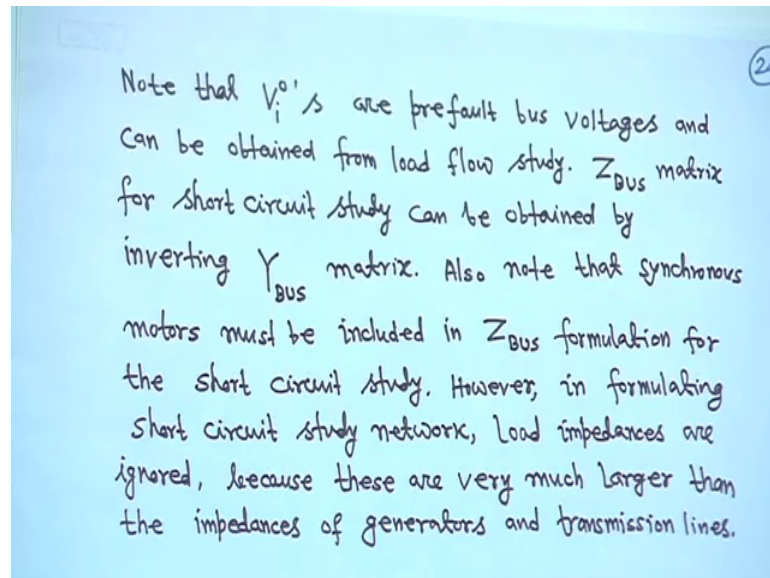 Note that V_i^o's are prefault bus voltages and
can be obtained from load flow study. Z_BUS matrix
for short circuit study can be obtained by
inverting Y_BUS matrix. Also note that synchronous
motors must be included in Z_BUS formulation for
the short circuit study. However, in formulating
short circuit study network, Load impedances are
ignored, because these are very much larger than
the impedances of generators and transmission lines.